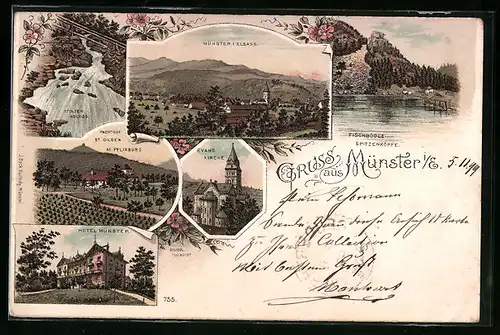 MÜNSTER I. ELSASS.
STOLZEN
ABLOSS
FISCHBÖDLE
SPITZENKÖPFE.
PACHTHOF
ST. GILGEN
M. PFLIXBURG
EVANG.
KIRCHE
GRUSS aus Münster i/E. 5.11.99
HOTEL MÜNSTER.
755.
Herrn Lehmann
Sende Ihnen diese Ansichtskarte
zu Ihrer Collection
Mit bestem Gruß